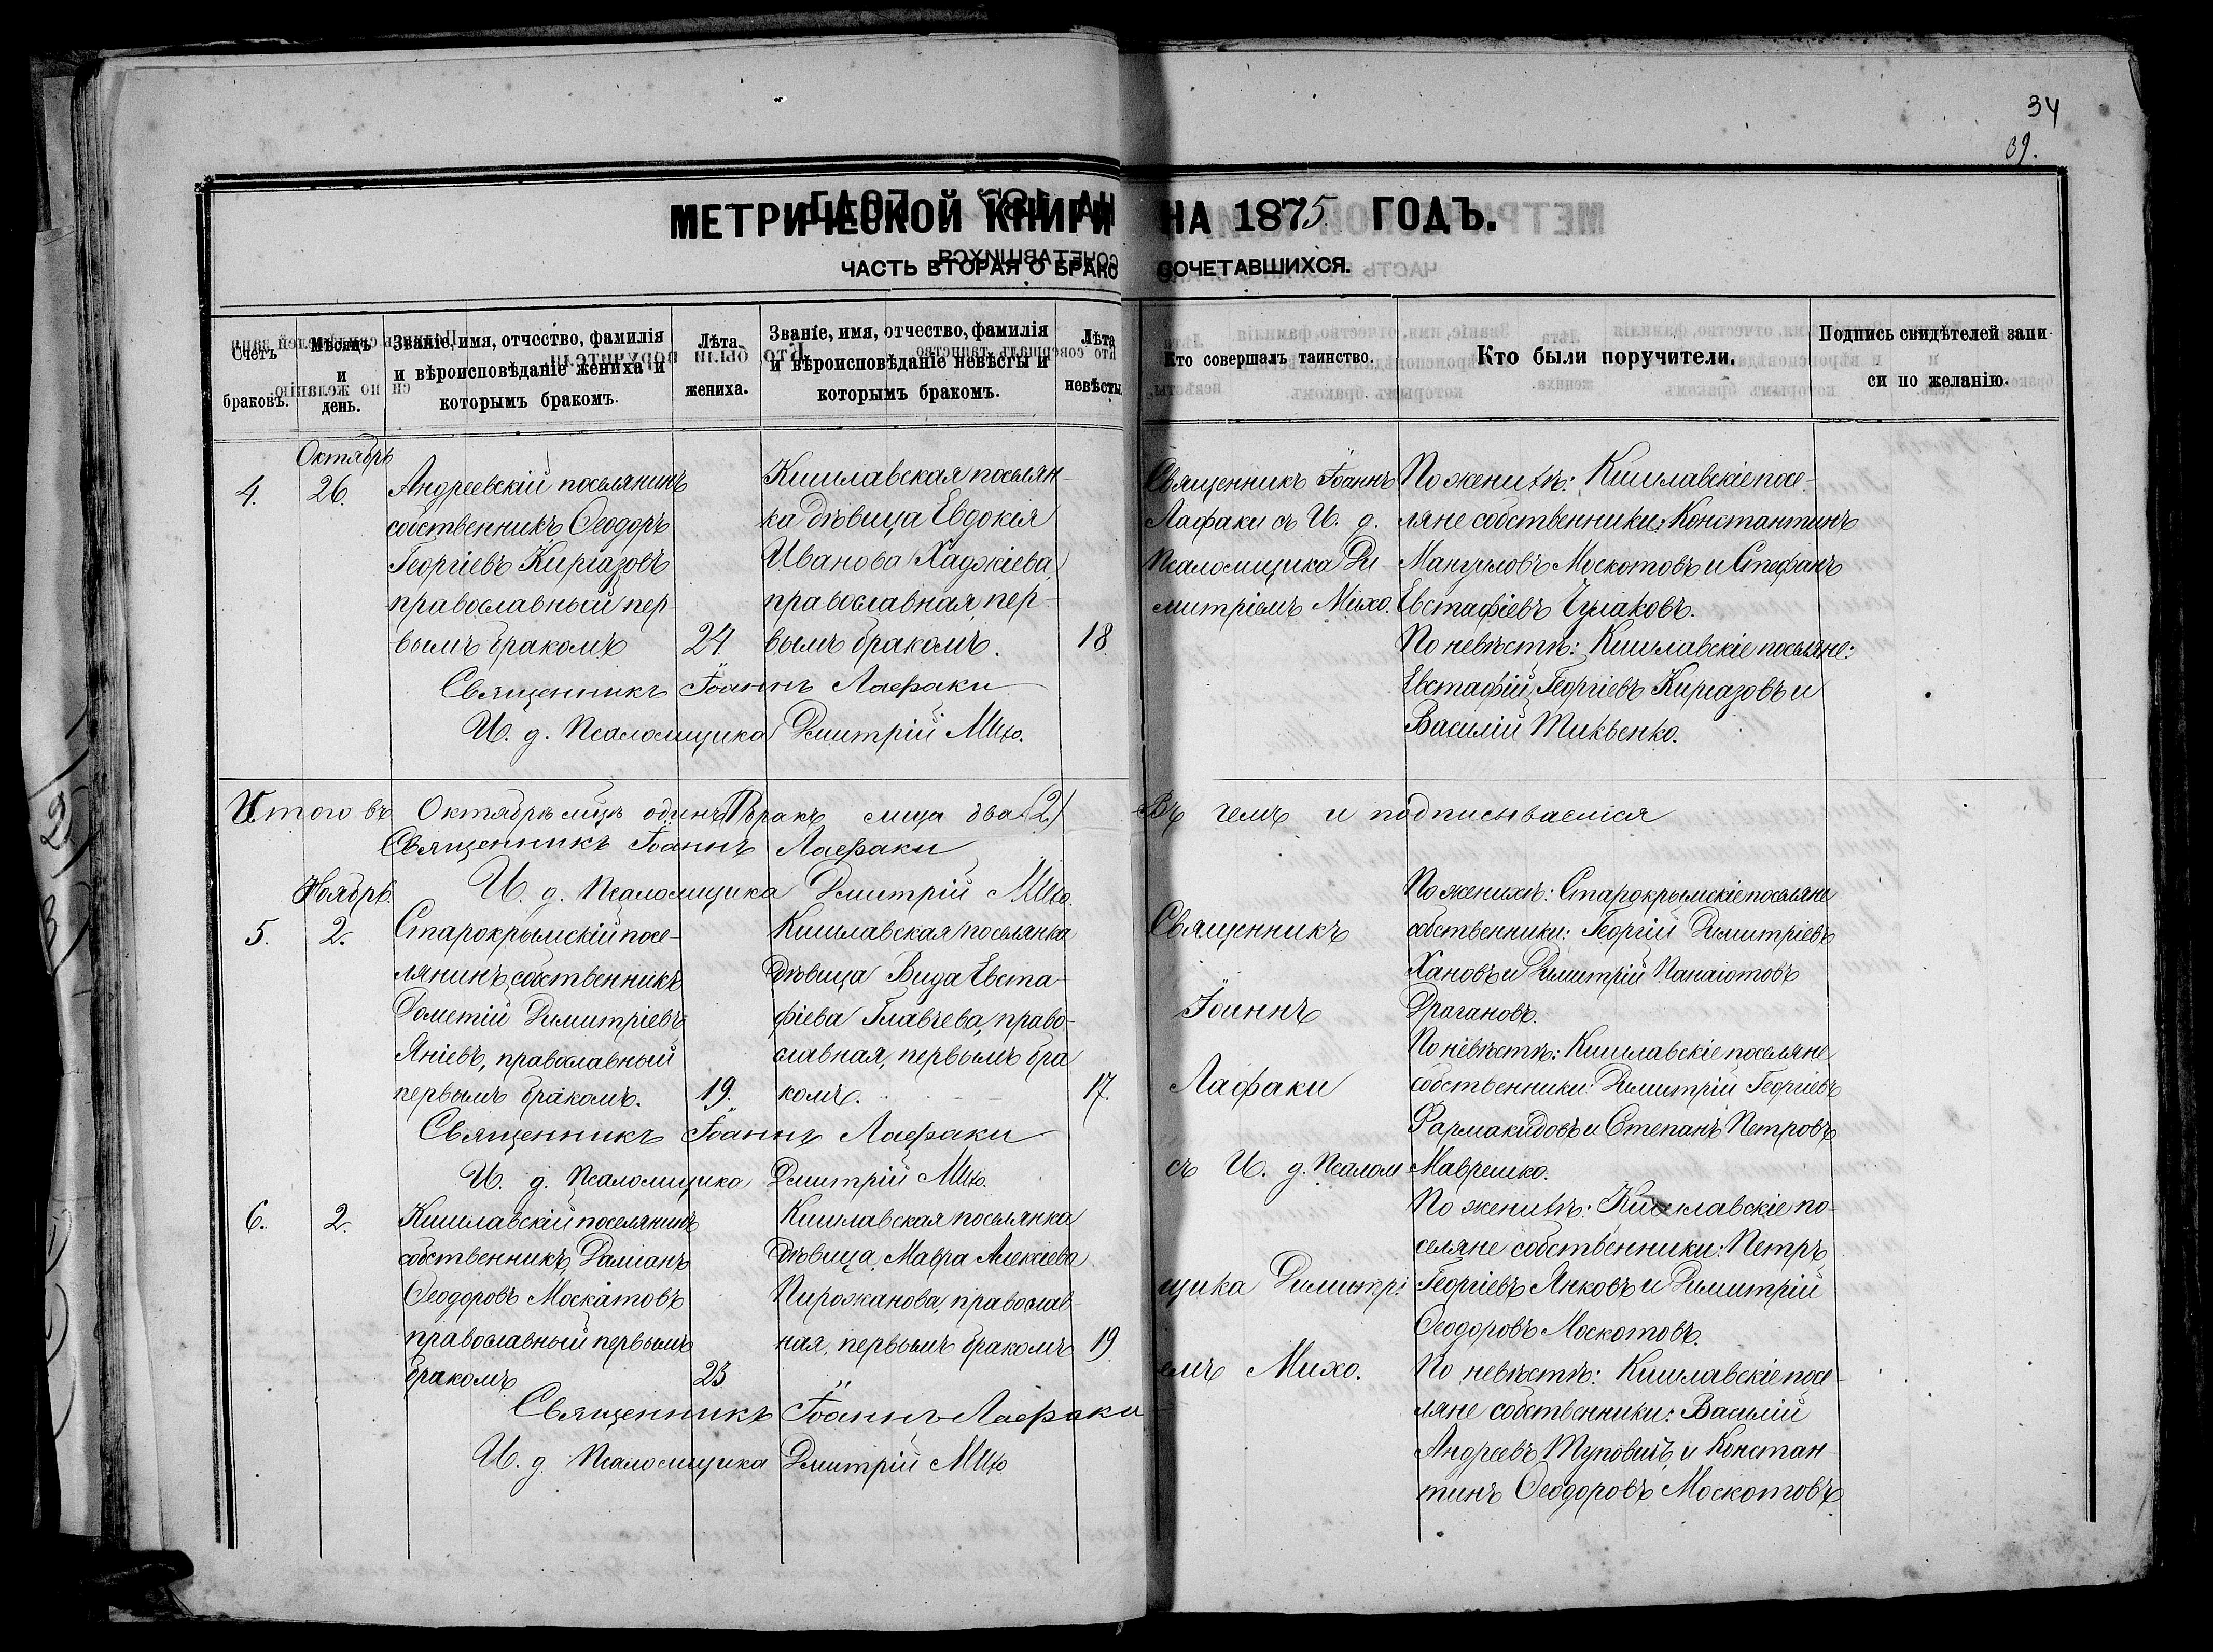 34
39.
МЕТРИЧЕСКОЙ КНИГИ НА 1875 ГОДЪ.
ЧАСТЬ ВТОРАЯ О БРАКОСОЧЕТАВШИХСЯ.
Счетъ браковъ.
Мѣсяцъ и день.
Званіе, имя, отчество, фамилія
и вѣроисповѣданіе жениха и
которымъ бракомъ.
Лѣта
жениха.
Званіе, имя, отчество, фамилія
и вѣроисповѣданіе невѣсты и
которымъ бракомъ.
Лѣта
невѣсты
Кто совершалъ таинство.
Кто были поручители.
Подпись свидѣтелей запи
си по желанію.
Октябрь
4.
26.
Андреевскій поселянинъ
собственникъ Ѳеодоръ
Георгіевъ Киріазовъ
православный пер-
вымъ бракомъ
24
Кишлавская поселян-
ка дѣвица Евдокія
Иванова Хаджіева
православная, пер-
вымъ бракомъ.
18
Священникъ Іоаннъ
Лафаки съ И. д.
Псаломщика Ди-
митріемъ Михо.
По женихѣ: Кишлавскіе посе-
ляне собственники: Константинъ
Мануиловъ Москотовъ и Стефанъ
Евстафіевъ Чулаковъ.
По невѣстѣ: Кишлавскіе поселяне:
Евстафій Георгіевъ Киріазовъ и
Василій Тиквенко.
Священникъ Іоаннъ Лафаки
И. д. Псаломщика Дмитрій Михо.
Итого въ Октябрѣ мцѣ одинъ бракъ лица два (2) Въ чемъ и подписываемся
Священникъ Іоаннъ Лафаки
И. д. Псаломщика Дмитрій Михо.
Ноябрь.
5.
2.
Старокрымскій посе-
лянинъ собственникъ
Дометій Димитріевъ
Яніевъ, православный
первымъ бракомъ.
19.
Кишлавская поселянка
дѣвица Вида Евста-
фіева Главчева, право-
славная, первымъ бра
комъ.
17.
Священникъ
Іоаннъ
Лафаки
съ И. д. Псалом
щика Димитрі
емъ Михо.
По женихѣ: Старокрымскіе поселяне
собственники: Георгій Димитріевъ
Хановъ и Димитрій Панаіотовъ
Драгановъ.
По невѣстѣ: Кишлавскіе поселяне
собственники: Димитрій Георгіевъ
Фармакидовъ и Степанъ Петровъ
Маврешко.
Священникъ Іоаннъ Лафаки
И. д. Псаломщика Дмитрій Михо.
6.
2.
Кишлавскій поселянинъ
собственникъ Даміанъ
Ѳеодоровъ Москатовъ
православный первымъ
бракомъ
23
Кишлавская поселянка
дѣвица Мавра Алексіева
Пирожанова, православ-
ная, первымъ бракомъ
19
По женихѣ: Кишлавскіе по-
селяне собственники: Петръ
Георгіевъ Янковъ и Димитрій
Ѳеодоровъ Москотовъ.
По невѣстѣ: Кишлавскіе посе-
ляне собственники: Василій
Андреевъ и Констан-
тинъ Ѳеодоровъ Москотовъ
Священникъ Іоаннъ Лафаки
И. д. Псаломщика Дмитрій Михо